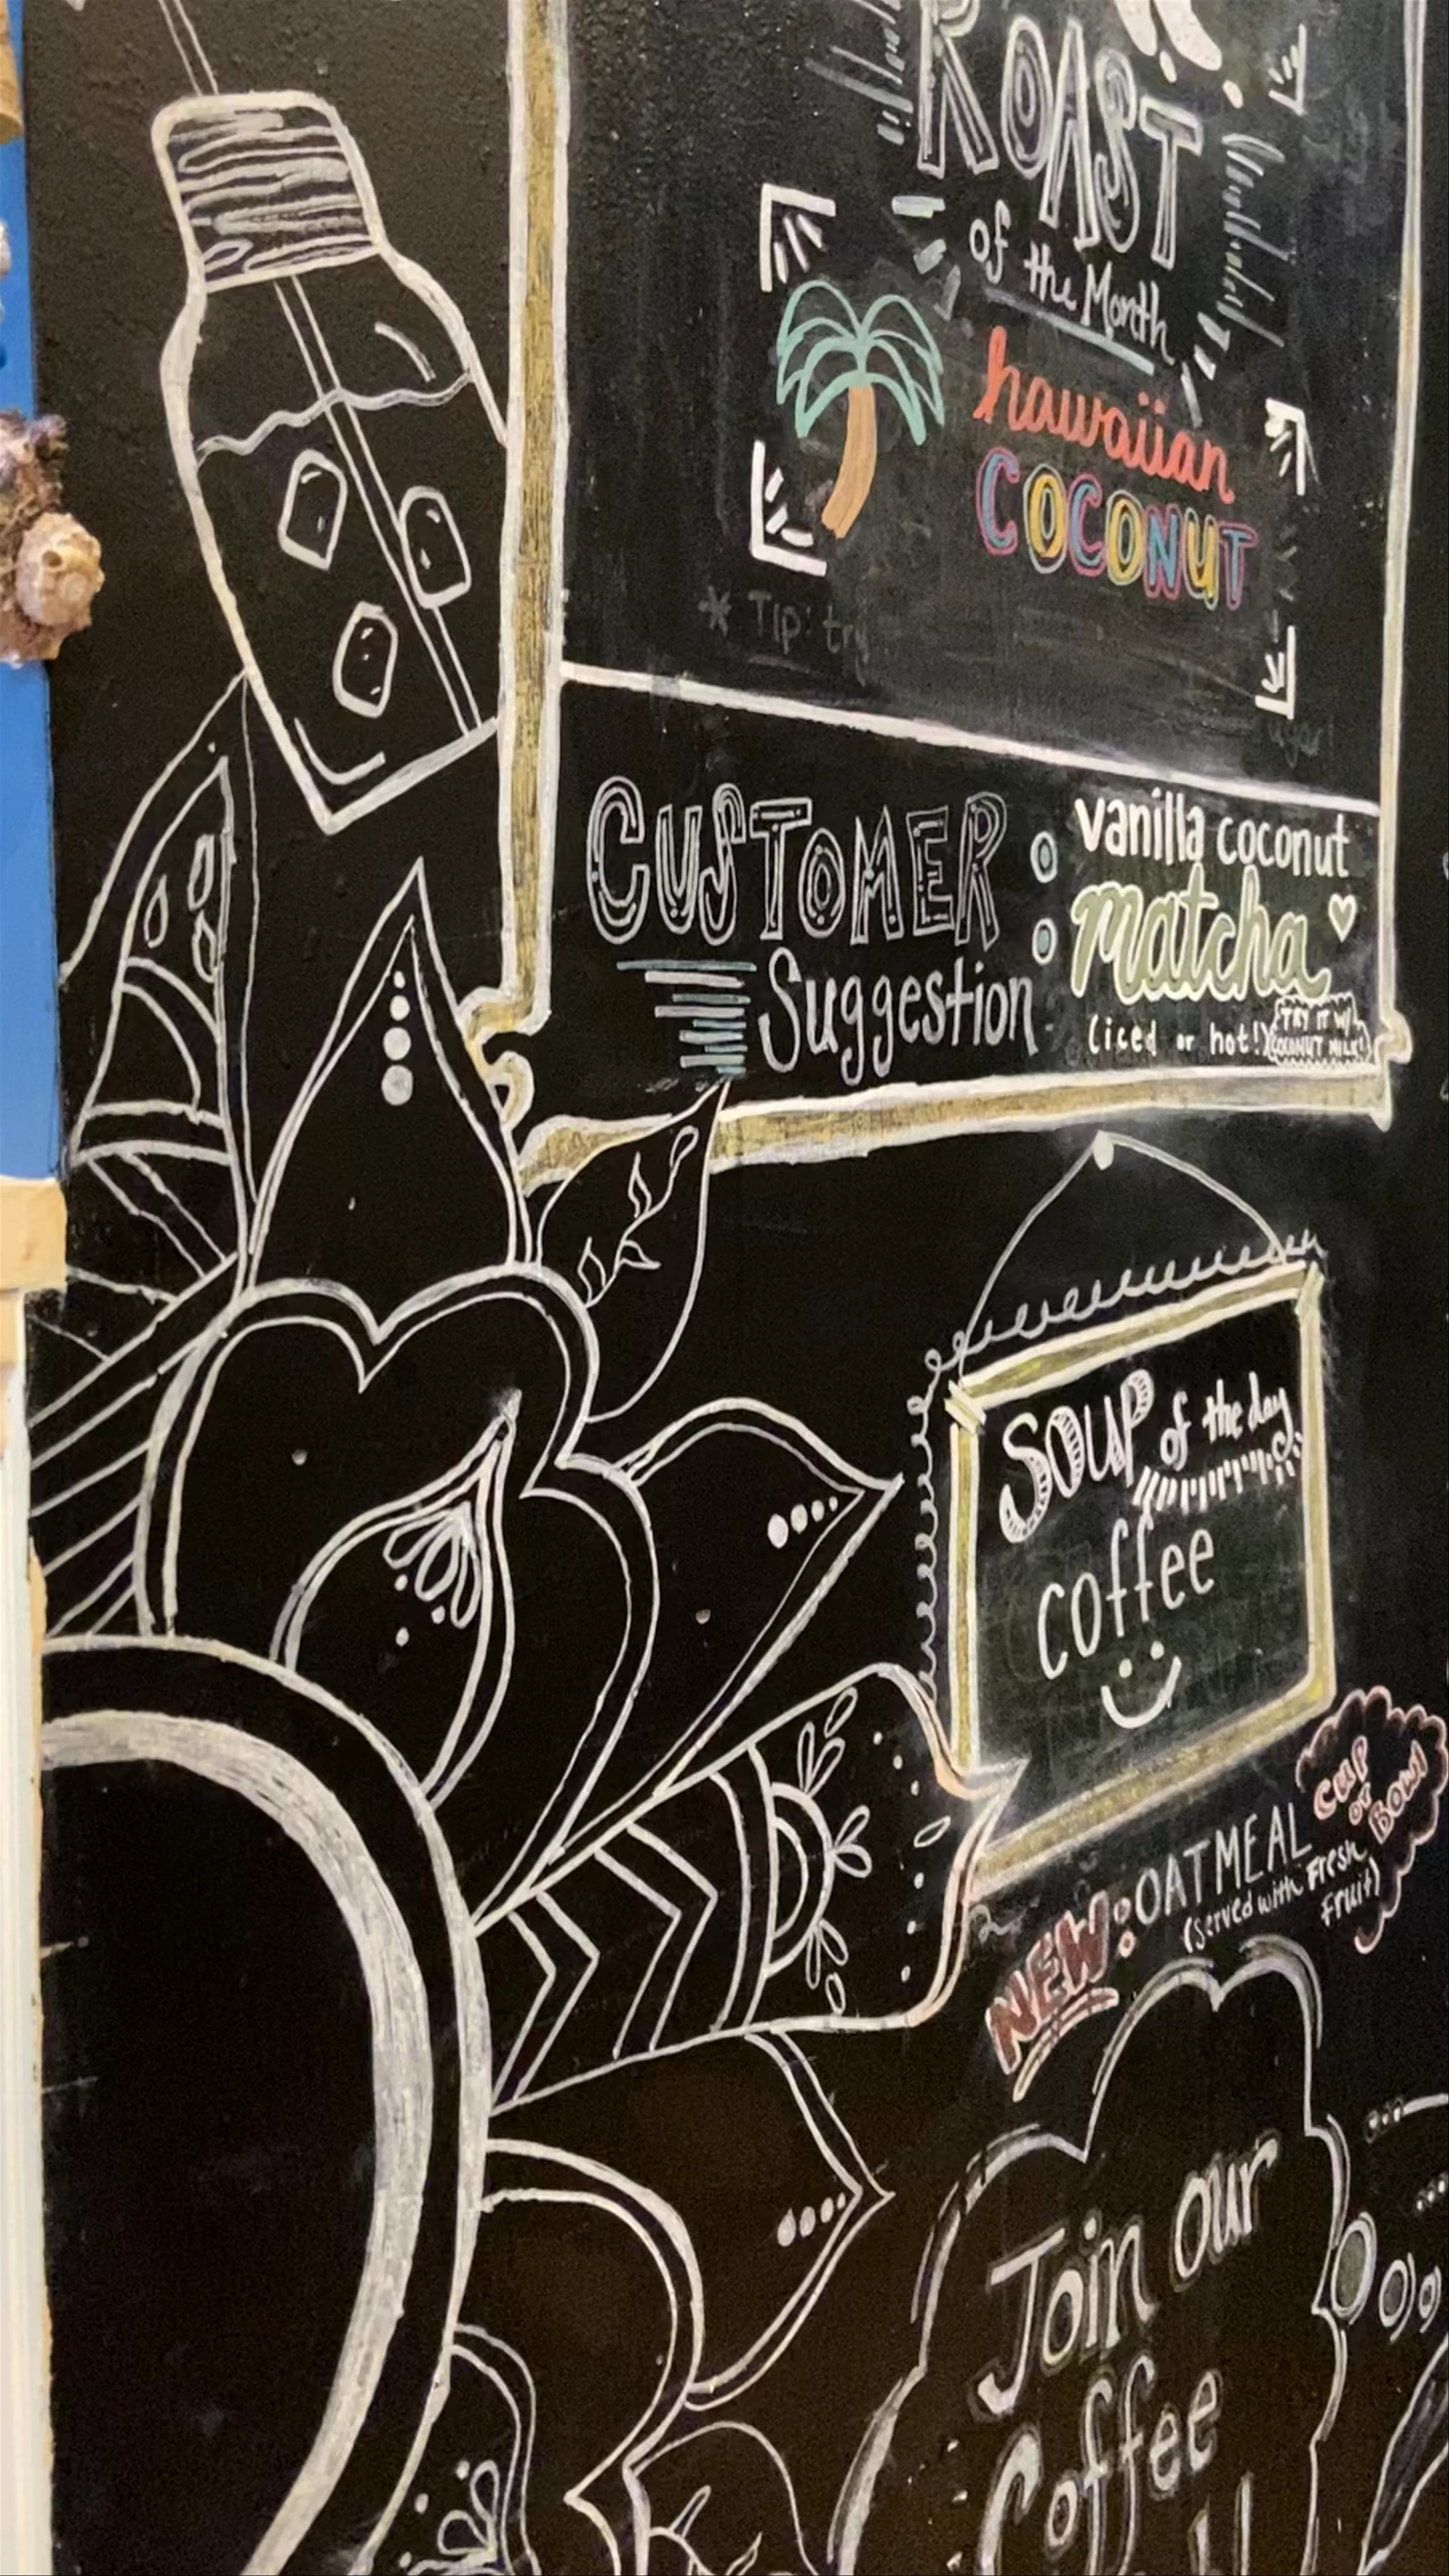 ROAST
of the Month
hawaiian
COCONUT
* Tip: try
CUSTOMER
Suggestion
vanilla coconut
matcha
(iced or hot!)
TRY IT W/
COCONUT MILK!
SOUP of the day
coffee
NEW: OATMEAL
(served with Fresh
Fruit)
CUP
or
BOWL
Join our
Coffee